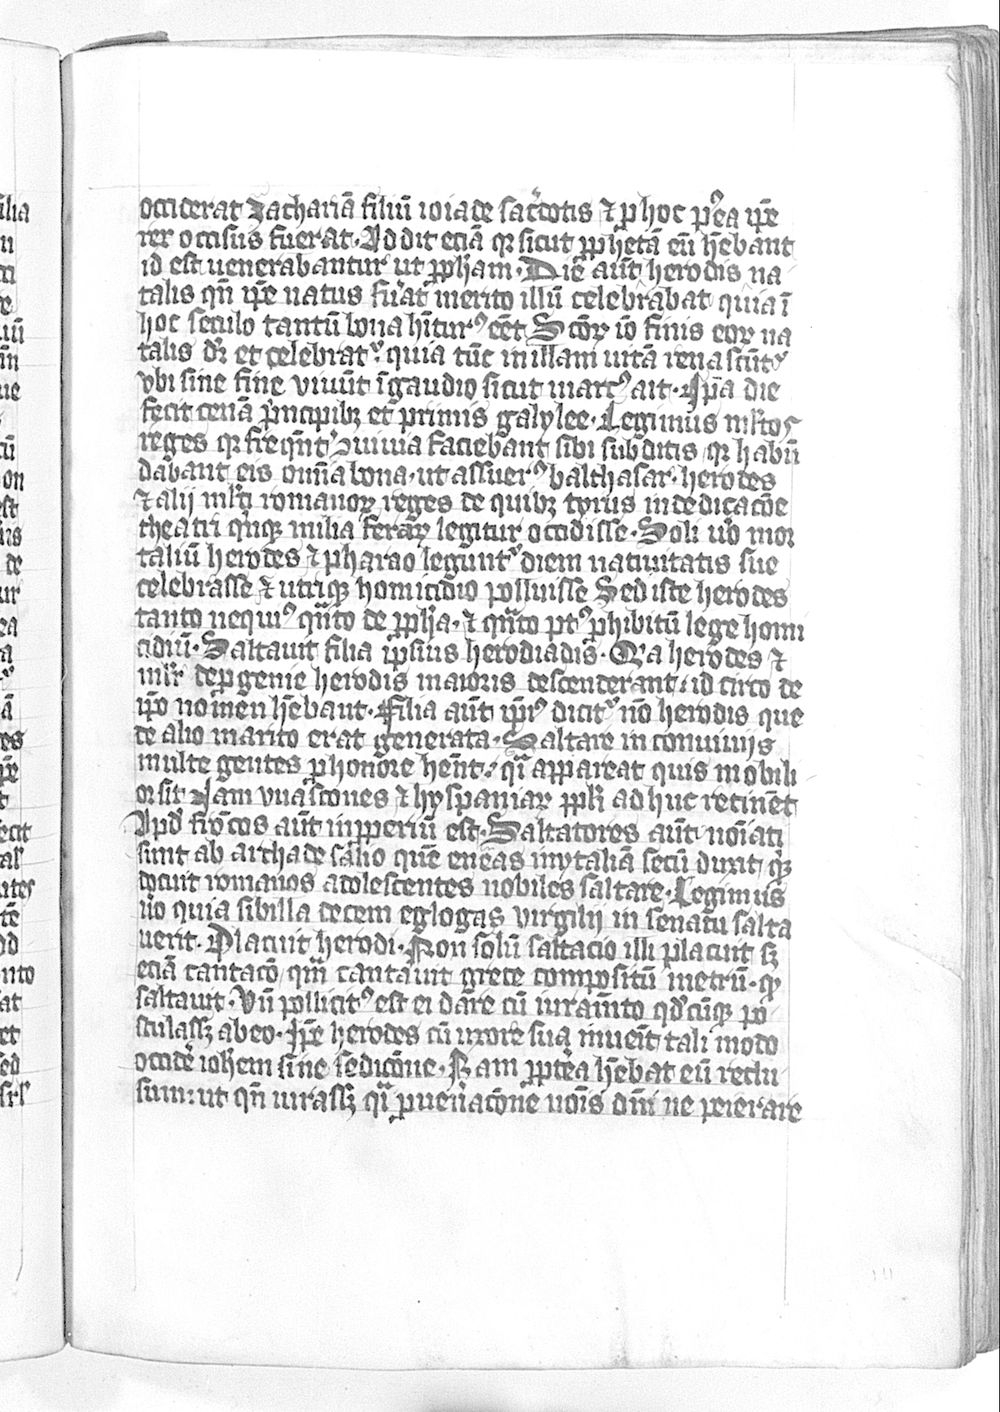 occiderat zachariā filiū ioiade sac̄dotis ⁊ p hoc p̄ea ip̄e
rex occisus fuerat. Addit eciā qꝛ sicut ꝓphetā eū hēbant
id est uenerabantur ut ꝓpham. Die aut̄ herodis na
talis qn̄ ip̄e natus fu̓at merito illū celebrabat quia ī
hoc seculo tantū bona hīturꝰ eēt Scōꝝ io̅ finis eoꝝ na
talis dr̄ et celebratᷣ quia tūc in illam uitā renascūtᷣ
vbi sine fine viuūt ī gaudio sicut marcꝰ ait. Ip̄a die
fecit cenā p̄ncipibꝫ et primis galylee. Legimus ml̓tos
reges qꝛ freqn̄t̓ ꝯuiuia faciebant sibi subditis qꝛ habū
dabant eis omīa bona. ut assuerꝰ balthasar. herodes
⁊ alij ml̓ti romanoꝝ reges de quibꝫ tytus in dedicacōe
theatri qnqꝫ milia feraꝝ legitur occidisse. Soli u̓o mor
taliū herodes ⁊ pharao leguntᷣ diem natiuitatis sue
celebrasse ⁊ utriqꝫ homicidio polluisse Sed iste herodes
tanto nequiꝰ qn̄to de ꝓpha. ⁊ qn̄to ptꝰ phibitū lege homi
cidiū. Saltauit filia ipsius herodiadis. Qꝛa herodes ⁊
ml̓r de pgenie herodis maioris descenderant. id circo de
ip̄o nomen hēbant. Filia aut̄ ip̄iꝰ dicitᷣ nō herodis que
de alio marito erat generata. Saltare in conuiuijs
multe gentes p honore hent. qn̄ appareat quis mobili
or sit Iam vuascones ⁊ hyspaniaꝝ ppli adhuc retinēt
Apd̓ frōcos aut̄ inpperiū est. Saltatores aut̄ noīati
sunt ab archade salio quē eneas in ytaliā secū duxit qꝫ
docuit romanos adolescentes nobiles saltare. Legimus
u̓o quia sibilla decem eglogas virgilij in senatu salta
uerit. Placuit herodi. Non solū saltacio illi placuit sꝫ
eciā cantacō qn̄ cantauit grece compositū metrū. qꝫ
saltauit. Vn̄ pollicitꝰ est ei dare cū iuramto qd̓cūqꝫ po
stulassꝫ ab eo. Ip̄e herodes cū uxore sua inuenit tali modo
occidē iohem sine sedicōne. Nam ꝓptēa hēbat eū reclu
sum: ut qn̄ iurassꝫ qn̄ p uen̄acōne noīs dnī ne peierare